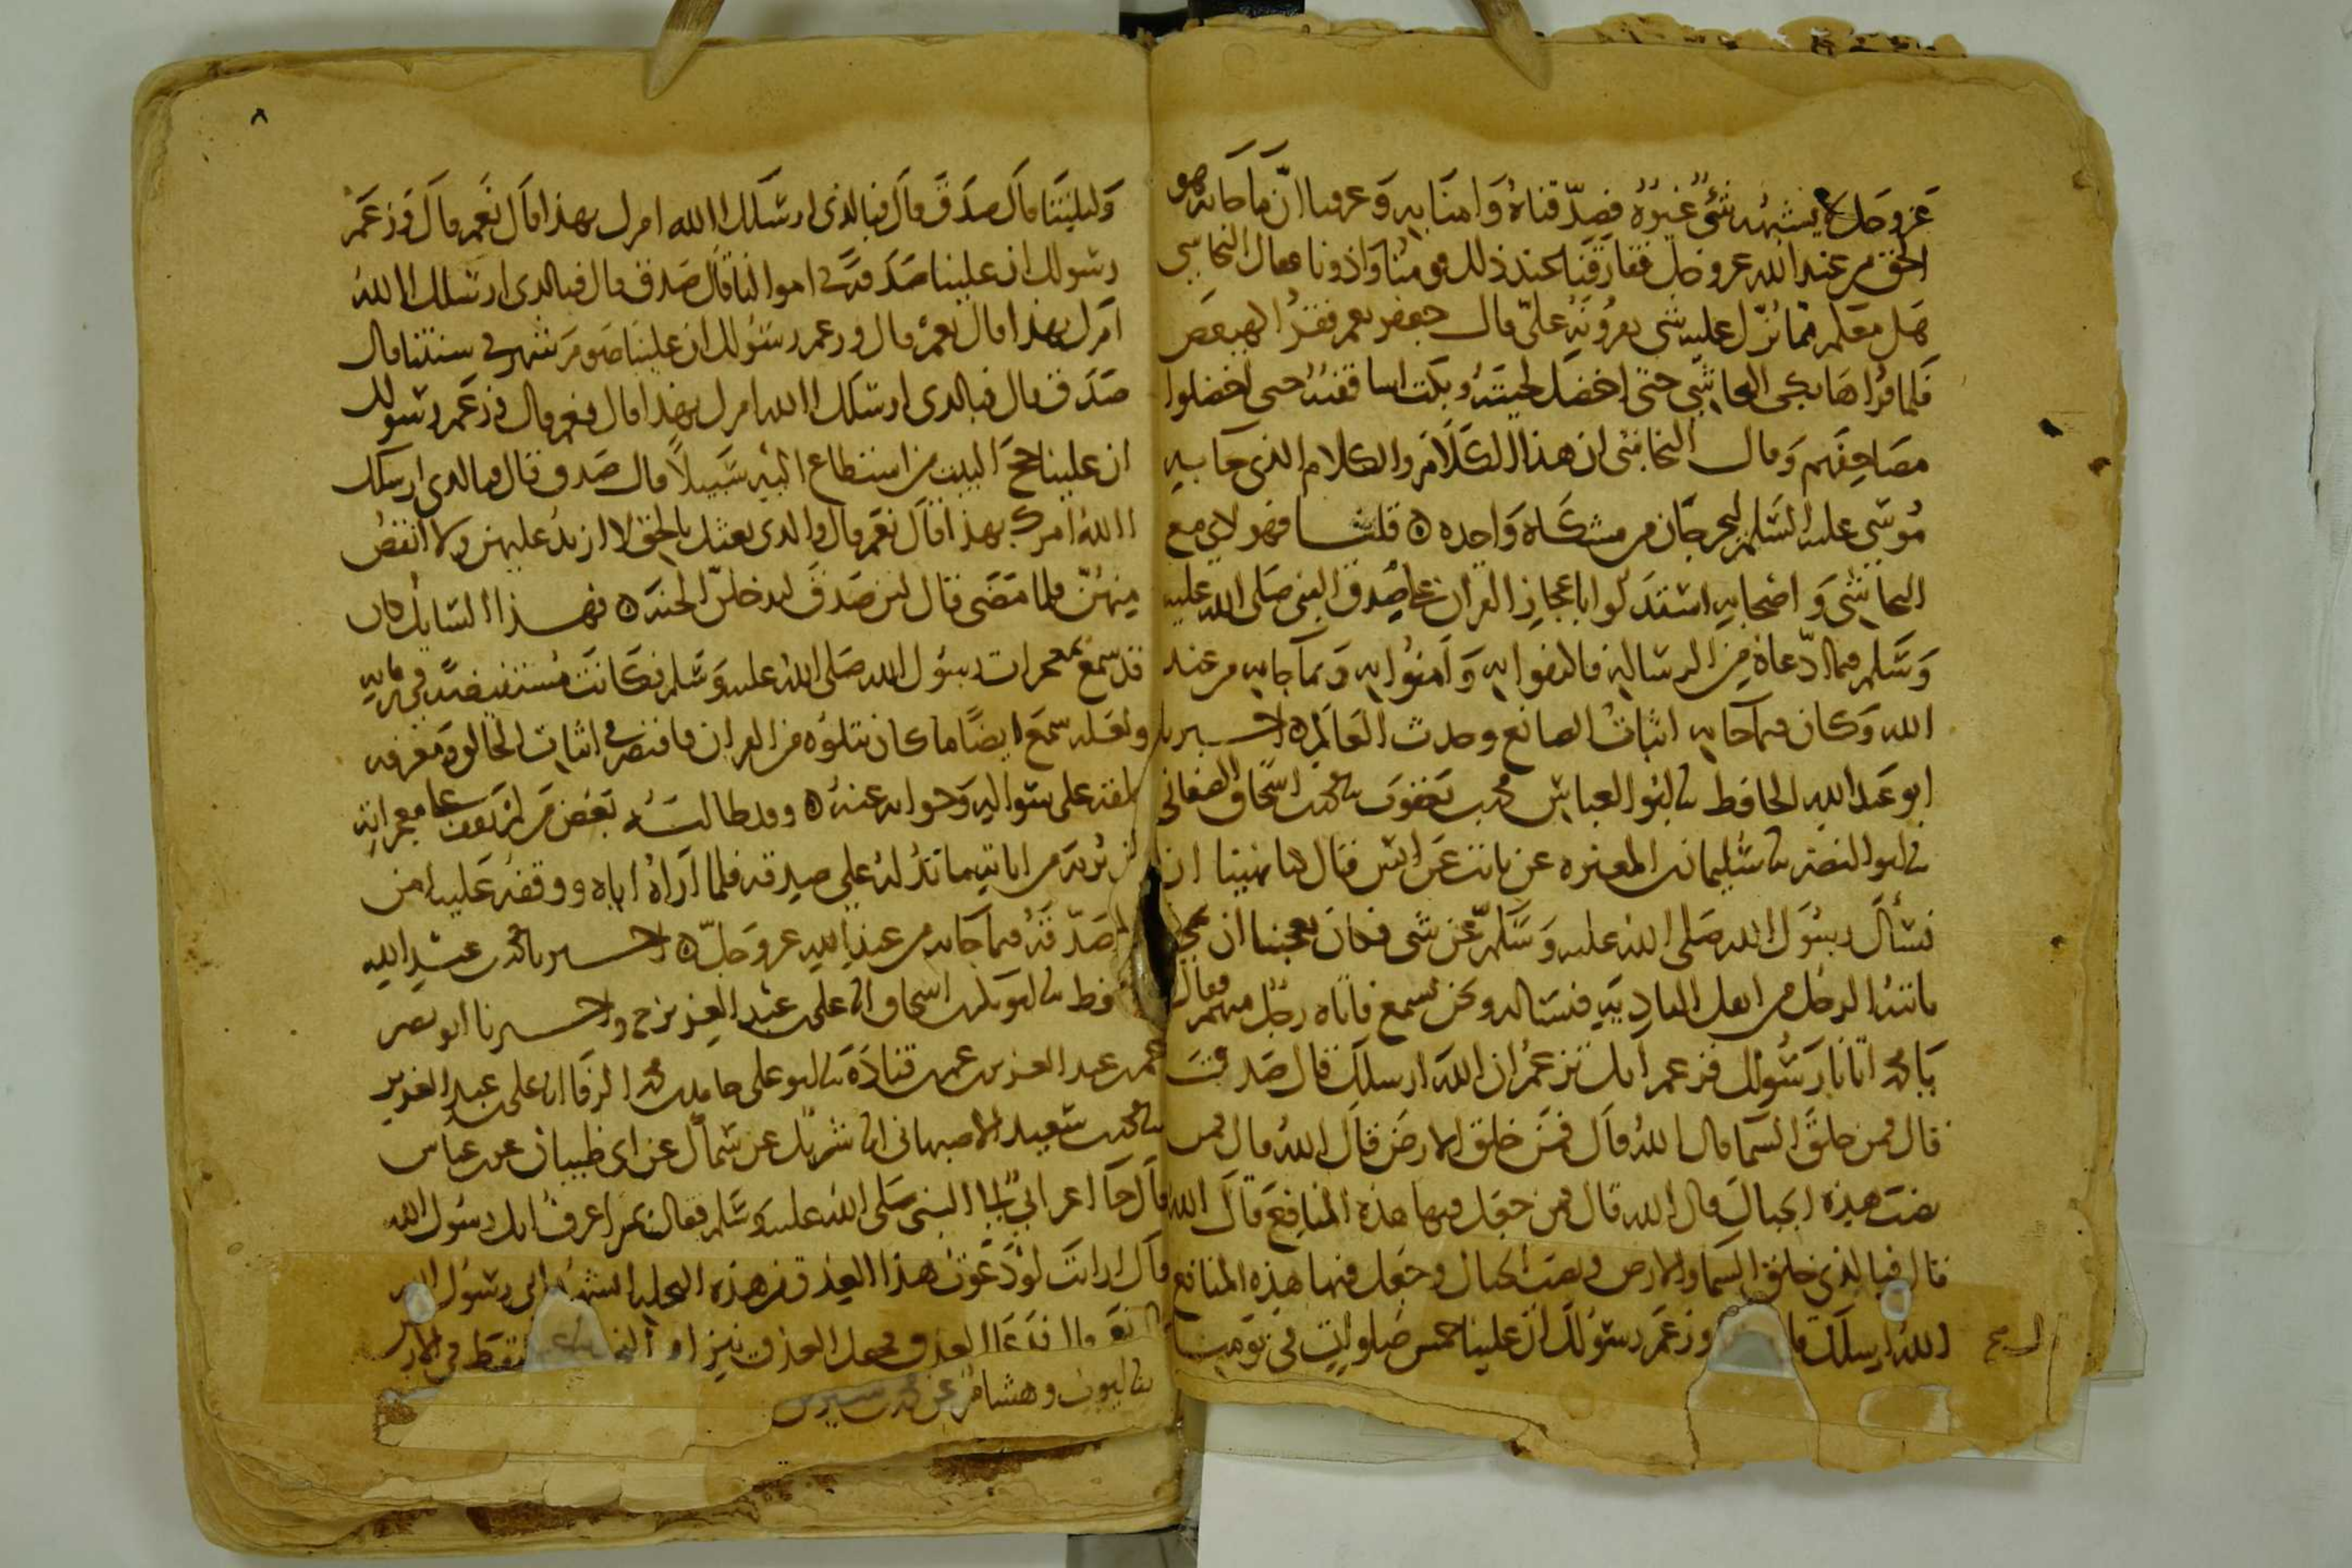 عز وجل لا يشبهه شيء غيره فصدقناه وامنا به وعرفنا ان ما جا به هو
الحق من عند الله عز وجل ففارقنا عند ذلك قومنا واذونا فقال النجاشي
هل معكم مما نزل عليه شي تقرونه علي قال جعفر نعم فقرا كهيعص
فلما قراها بكى النجاشي حتى اخضل لحيته وبكت اساقفته حتى اخضلوا
مصاحفهم وقال النجاشي ان هذا الكلام والكلام الذي جا به
موسى عليه السلم ليخرجان من مشكاة واحده ه قلنا فهولاي مع
النجاشي واصحابه استدلوا باعجاز القران على صدق النبي صلى الله عليه
وسلم فيما ادعاه من الرسالة فاكتفوا به وامنوا به وبما جا به من عند
الله وكان فيما جا به اثبات الصانع وحدث العالم ه اخبرنا
ابو عبد الله الحافظ نا ابو العباس محمد بن يعقوب نا محمد بن اسحاق الصغاني
نا ابو النضر نا سليمان بن المغيره عن ثابت عن انس قال كنا نهينا ان
نسأل رسول الله صلى الله عليه وسلم عن شي فكان يعجبنا ان يجي
ياتيه الرجل من اهل البادية فيساله ونحن نسمع فاتاه رجل منهم فقال
يا محمد اتانا رسولك فزعم انك تزعم ان الله ارسلك قال صدق
قال فمن خلق السما قال الله قال فمن خلق الارض قال الله قال فمن
نصب هذه الجبال قال الله قال فمن جعل فيها هذه المنافع قال الله
قال فبالذي خلق السما والارض ونصب الجبال وجعل فيها هذه المنافع
الله ارسلك قا وزعم رسولك ان علينا خمس صلوات في يومنا
٨
وليلتنا قال صدق قال فبالذي ارسلك االله امرك بهذا قال نعم قال وزعم
رسولك ان علينا صدقة في اموالنا قال صدق قال فبالذي ارسلك االله
امرك بهذا قال نعم قال وزعم رسولك ان علينا صوم شهر في سنتنا قال
صدق قال فبالذي ارسلك االله امرك بهذا قال نعم قال وزعم رسولك
ان علينا حج البيت من استطاع اليه سبيلا قال صدق قال فبالذي ارسلك
االله امرك بهذا قال نعم قال والذي بعثك بالحق لا ازيد عليهن ولا انقص
منهن فلما مضى قال لئن صدق ليدخلن الجنة ه فهذا السايل كان
قد سمع بمعجزات رسول الله صلى الله عليه وسلم فكانت مستفيضة في زمانه
ولعله سمع ايضا ما كان يتلوه من القران فاقتصر في اثبات الخالق ومعرفة
خلقه على سواله وجوابه عنه ه وقد طالبه بعض من لم يقف على معجزاته
ان يريه من اياته ما تدله على صدقه فلما اراه اياه ووقفه عليه امن
صدقه فيما جا به من عند الله عز وجل ه اخبرنا محمد بن عبد الله
فظ نا ابو بكر بن اسحاق انا علي بن عبد العزيز ح واخبرنا ابو نصر
عمر بن عبد العزيز بن عمر بن قتادة نا ابو علي حامد بن محمد الرفا انا علي بن عبد العزيز
نا محمد بن سعيد الاصبهاني انا شريك عن سماك عن ابي ظبيان عن بن عباس
قال جا اعرابي الى النبي صلى الله عليه وسلم فقال بم اعرف انك رسول الله
قال ارايت لو دعوت هذا العذق من هذه النخلة اتشهد اني رسول الله
نعم قال فدعا العذق فجعل العذق ينزل من النخلة سقط في الار
نا ايوب وهشام عن محمد بن سيرين